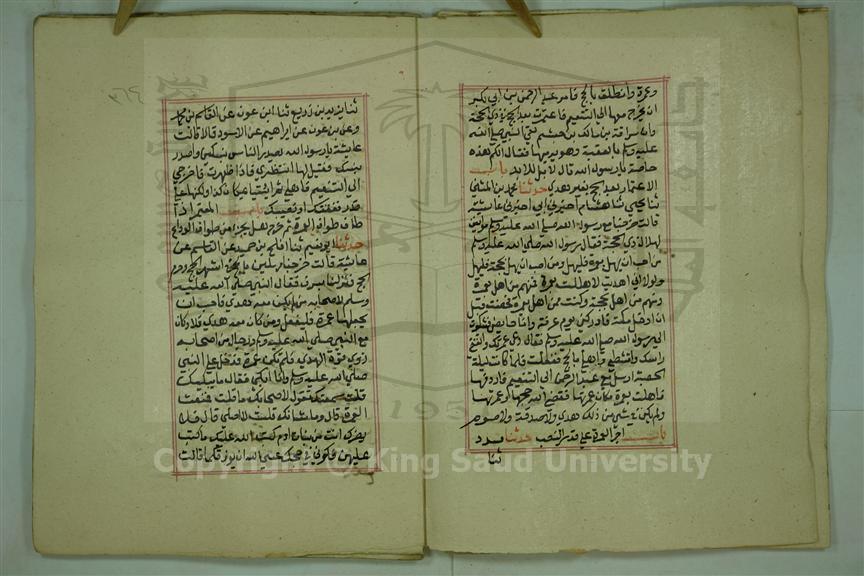 وعمرة وانطلق بالحج فامر عبد الرحمن بن ابي بكر
ان يخرج معها الى التنعيم فاعتمرت بعد الحج في ذي الحجة
وان سراقة بن مالك بن جعشم لقي النبي صلى الله
عليه وسلم بالعقبة وهو يرميها فقال الكم هذه
خاصة يا رسول الله قال لا بل للابد باب
الاعتمار بعد الحج بغير هدي حدثنا محمد بن المثنى
ثنا يحيى ثنا هشام اخبرني ابي اخبرتني عائشة
قالت خرجنا مع رسول الله صلى الله عليه وسلم موافين
لهلال ذي الحجة فقال رسول الله صلى الله عليه وسلم
من احب ان يهل بعمرة فليهل ومن احب ان يهل بحجة فليهل
ولولا اني اهديت لاهللت بعمرة فمنهم من اهل بعمرة
ومنهم من اهل بحجة وكنت ممن اهل بعمرة فحضت قبل
ان ادخل مكة فادركني يوم عرفة وانا حايض فشكوت
الى رسول الله صلى الله عليه وسلم فقال دعي عمرتك وانقضي
راسك وامتشطي واهلي بالحج ففعلت فلما كانت ليلة
الحصبة ارسل معي عبد الرحمن الى التنعيم فاردفها
فاهلت بعمرة مكان عمرتها فقضى الله حجها وعمرتها
ولم يكن في شي من ذلك هدي ولا صدقة ولا صوم
باب اجر العمرة على قدر النصب حدثنا مسدد
ثنا
ثنا يزيد بن زريع ثنا ابن عون عن القاسم بن محمد
وعن بن عون عن ابراهيم عن الاسود قالا قالت
عائشة يا رسول الله يصدر الناس بنسكين واصدر
بنسك فقيل لها انتظري فاذا طهرت فاخرجي
الى التنعيم فاهلي ثم ائتينا بمكان كذا ولكنها على
قدر نفقتك او نصبك باب المعتمر اذا
طاف طواف العمرة ثم خرج هل يجزئه من طواف الوداع
حدثنا ابو نعيم ثنا افلح بن حميد عن القاسم عن
عائشة قالت خرجنا مهلين بالحج في اشهر الحج وحرم
الحج فنزلنا سرف فقال النبي صلى الله عليه
وسلم لاصحابه من لم يكن معه هدي فاحب ان
يجعلها عمرة فليفعل ومن كان معه هدي فلا وكان
مع النبي صلى الله عليه وسلم ورجال من اصحابه
ذوي قوة الهدي فلم تكن لهم عمرة فدخل علي النبي
صلى الله عليه وسلم وانا ابكي فقال ما يبكيك
قلت سمعتك تقول لاصحابك ما قلت فمنعت
العمرة قال وما شانك قلت لا اصلي قال فلا
يضرك انت من بنات ادم كتب الله عليك ما كتب
عليهن فكوني في حجتك عسى الله ان يرزقكها قالت
٣٦٤
Copyright © King Saud University
1957